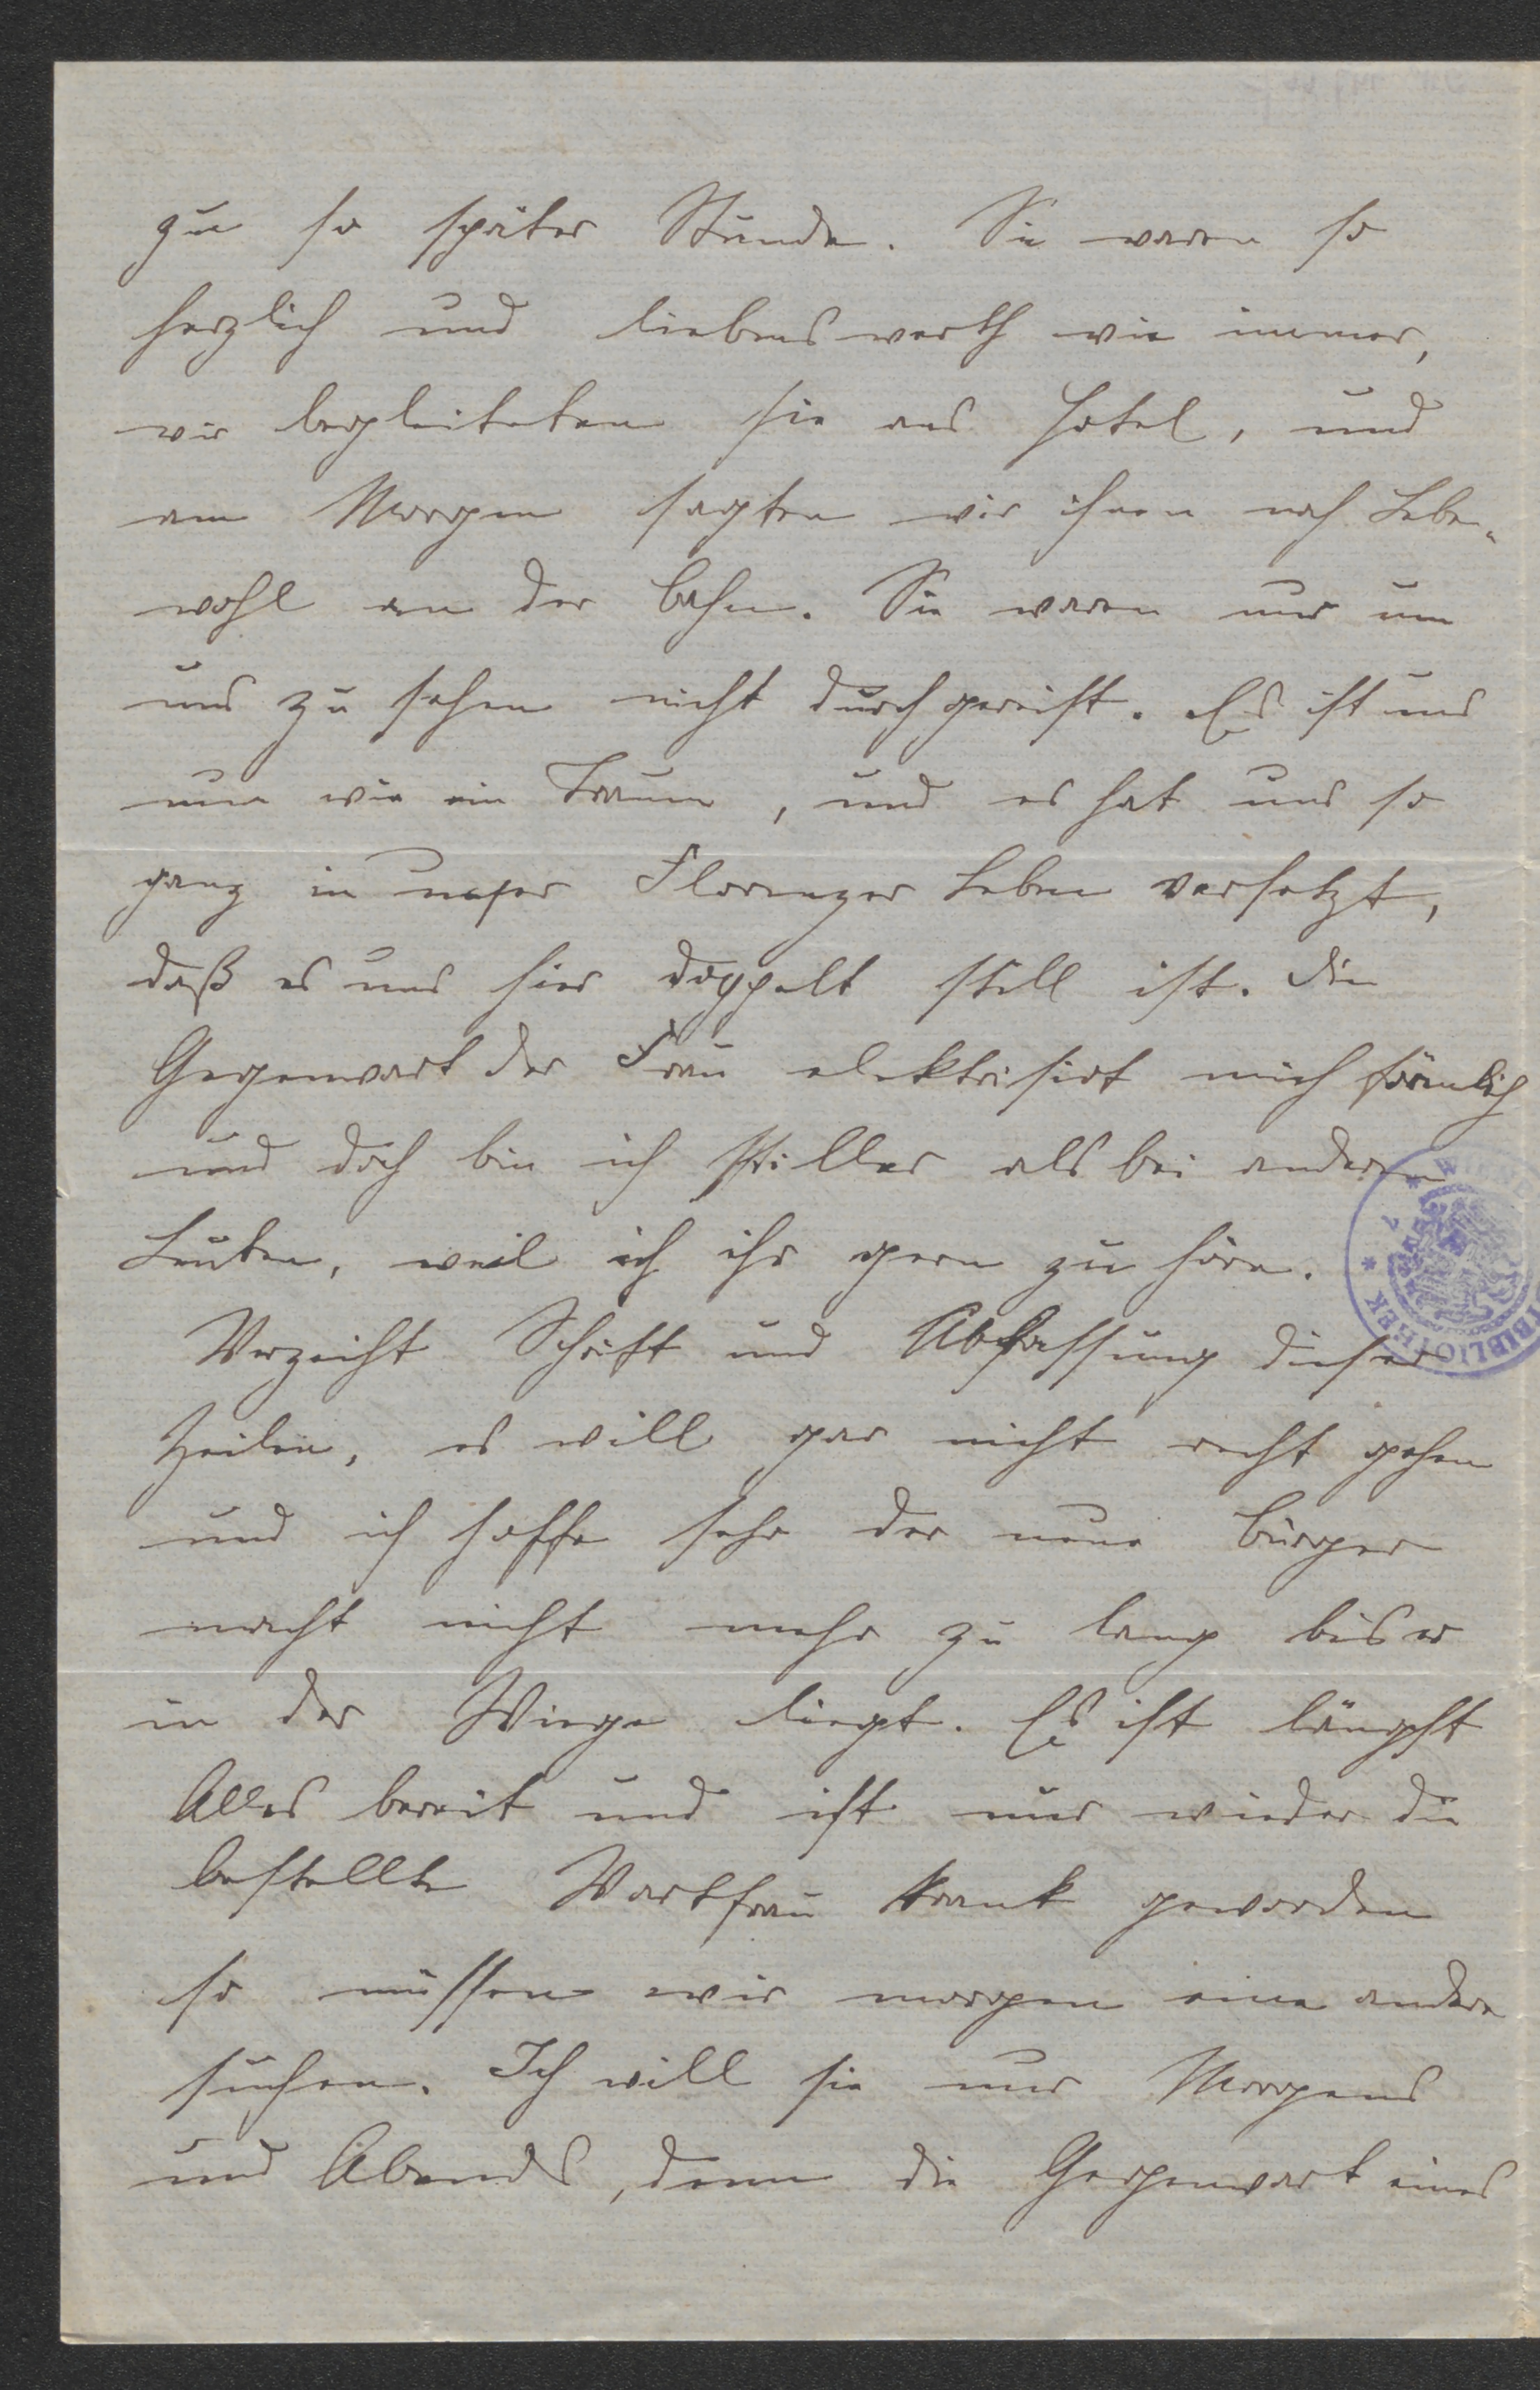 zu so später Stunde. Sie waren so
herzlich und liebenswerth wie immer,
wir begleiteten sie ans Hotel, und
am Morgen sagten wir ihnen noch Lebe-
wohl an der Bahn. Sie waren nur um
uns zu sehen nicht durchgereist. Es ist uns
nun wie ein Traum, und es hat uns so
ganz in unser Florenzer Leben versetzt,
daß es uns hier doppelt still ist. Die
Gegenwart der Frau elektrisirt mich förmlich
und doch bin ich stiller als bei anderen
Leuten, weil ich ihr gern zu höre.
Verzeiht Schrift und Abfassung dieser
Zeilen, es will gar nicht recht gehen
und ich hoffe sehr der neue Bürger
macht nicht mehr zu lang bis er
in der Wiege liegt. Es ist längst
Alles bereit und ist nur wieder die
bestellte Wartfrau krank geworden
so müssen wir morgen eine andere
suchen. Ich will sie nur Morgens
und Abends, denn die Gegenwart eines